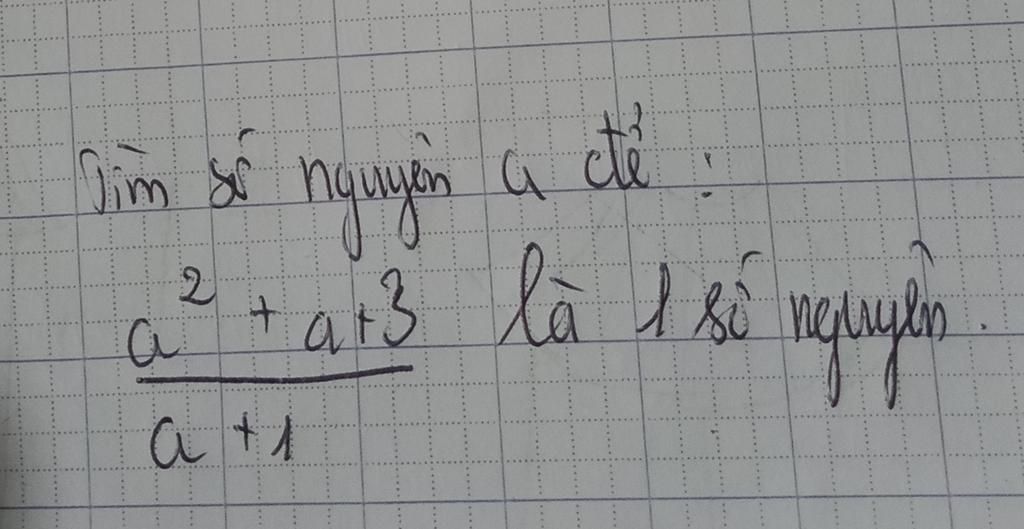 Tìm số nguyên a để :
a² + a+3 là 1 số nguyên.
a + 1